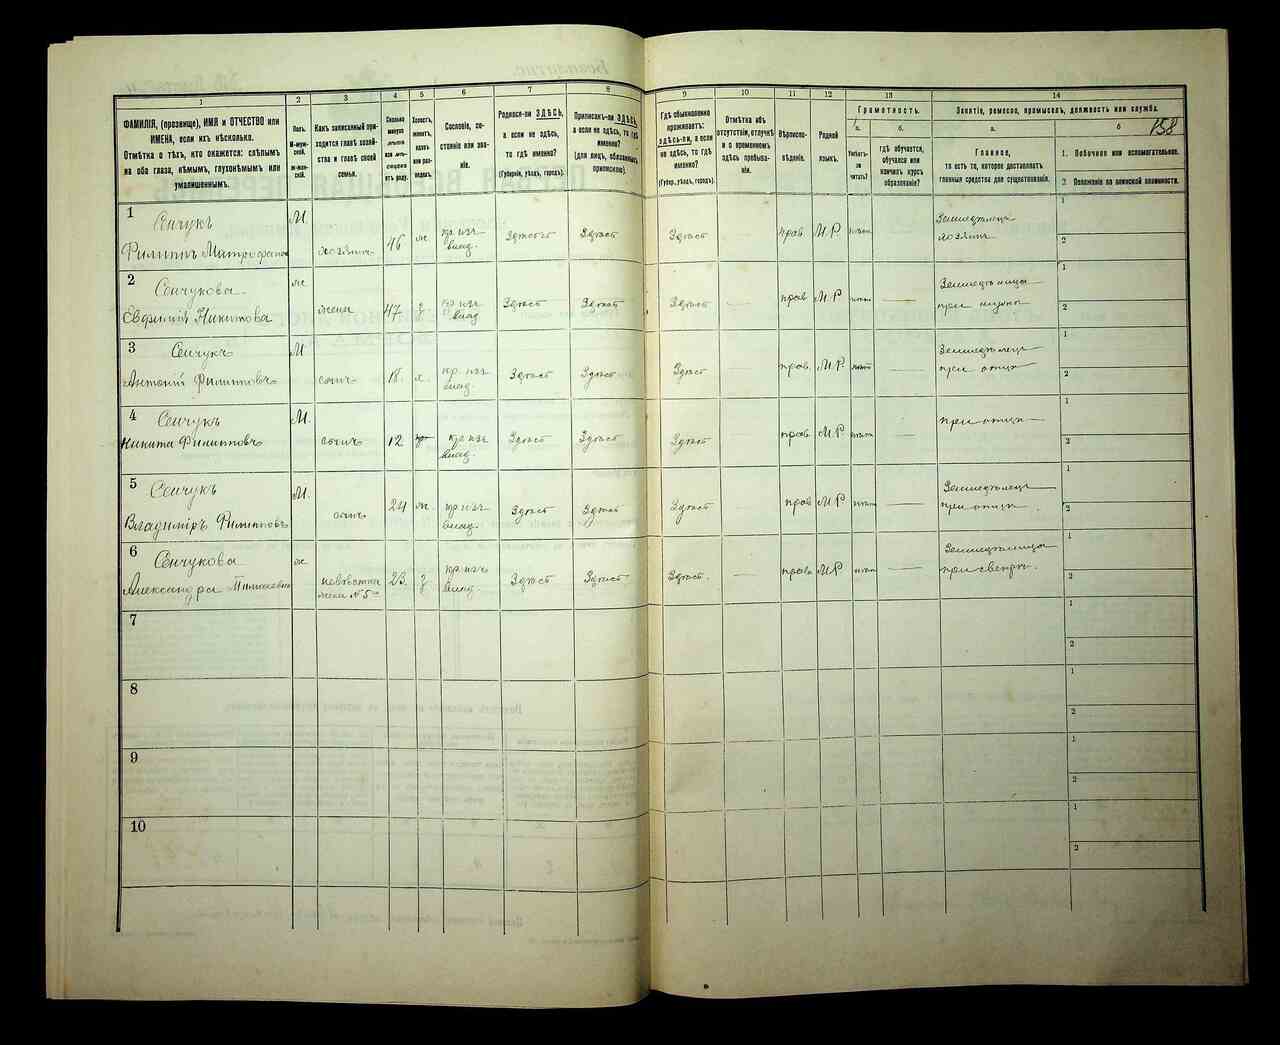 158
1 2 3 4 5 6 7 8 9 10 11 12 13 14
ФАМИЛІЯ, (прозвище), ИМЯ и ОТЧЕСТВО или
ИМЕНА, если ихъ нѣсколько.
Отмѣтка о тѣхъ, кто окажется: слѣпымъ
на оба глаза, нѣмымъ, глухонѣмымъ или
умалишеннымъ.
Полъ.
М-муж-
ской.
Ж-жен-
скій.
Какъ записанный при-
ходится главѣ хозяй-
ства и главѣ своей
семьи.
Сколько
минуло
лѣтъ
или мѣ-
сяцевъ
отъ роду.
Холостъ,
женатъ,
вдовъ
или раз-
веденъ.
Сословіе, со-
стояніе или зва-
ніе.
Родился-ли ЗДѢСЬ,
а если не здѣсь,
то гдѣ именно?
(Губернія, уѣздъ, городъ).
Приписанъ-ли ЗДѢСЬ,
а если не здѣсь, то гдѣ
именно?
(для лицъ, обязанныхъ
припискою).
Гдѣ обыкновенно
проживаетъ:
ЗДѢСЬ-ЛИ, а если
не здѣсь, то гдѣ
именно?
(Губер., уѣздъ, городъ).
Отмѣтка объ
отсутствіи, отлучкѣ
и о временномъ
здѣсь пребыва-
ніи.
Вѣроиспо-
вѣданіе.
Родной
языкъ.
Грамотность.
а. б.
Умѣетъ-
ли
читать?
гдѣ обучается,
обучался или
кончилъ курсъ
образованія?
Занятіе, ремесло, промыселъ, должность или служба.
а. б
Главное,
то есть то, которое доставляетъ
главныя средства для существованія.
1. Побочное или вспомогательное.
2 Положеніе по воинской повинности.
1 Сенчукъ М. кр. изъ Земледѣлецъ 1
Филиппъ хозяинъ 46 ж. влад. Здѣсь Здѣсь Здѣсь — прав. М.Р. хозяинъ 2
2 Сенчукова ж. кр. изъ Земледѣлица 1
Евфимія Никитова жена 47 з влад. Здѣсь Здѣсь Здѣсь — прав. М.Р. — при мужѣ 2
3 Сенчукъ М кр. изъ Земледѣлецъ 1
Антоній Филипповъ сынъ 18. х. влад. Здѣсь Здѣсь Здѣсь — прав. М.Р. — при отцѣ 2
4 Сенчукъ М. при отцѣ 1
Никита Филипповъ сынъ 12 кр. изъ влад. Здѣсь Здѣсь Здѣсь — прав. М.Р. — 2
5 Сенчукъ М. кр. изъ Земледѣлецъ 1
Владиміръ Филипповъ сынъ 24 ж. влад. Здѣсь Здѣсь Здѣсь — прав. М.Р. — при отцѣ 2
6 Сенчукова ж. кр. изъ Земледѣлица 1
Александра невѣстка 23. з влад. Здѣсь Здѣсь Здѣсь. — прав. М.Р. — при свекрѣ. 2
жена №5го
7 1
2
8 1
2
9 1
2
10 1
2